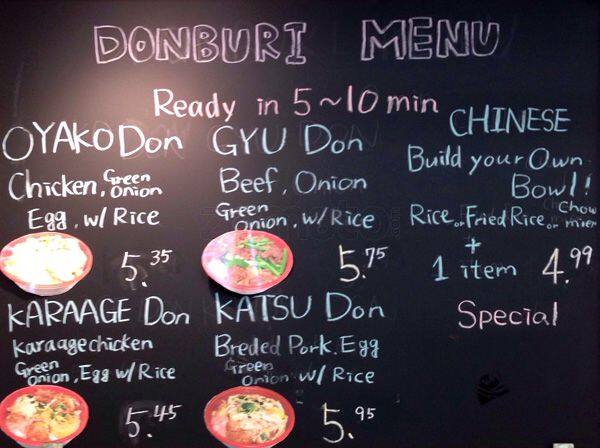 DONBURI MENU
Ready in 5~10 min
OYAKO Don
Chicken, Green Onion
Egg, w/ Rice
5.35
GYU Don
Beef, Onion
Green Onion, w/ Rice
5.75
KARAAGE Don
Karaage chicken
Green Onion, Egg w/ Rice
5.45
KATSU Don
Breded Pork, Egg
Green Onion w/ Rice
5.95
CHINESE
Build your Own
Bowl!
Rice or Fried Rice or Chow mien
+
1 item 4.99
Special